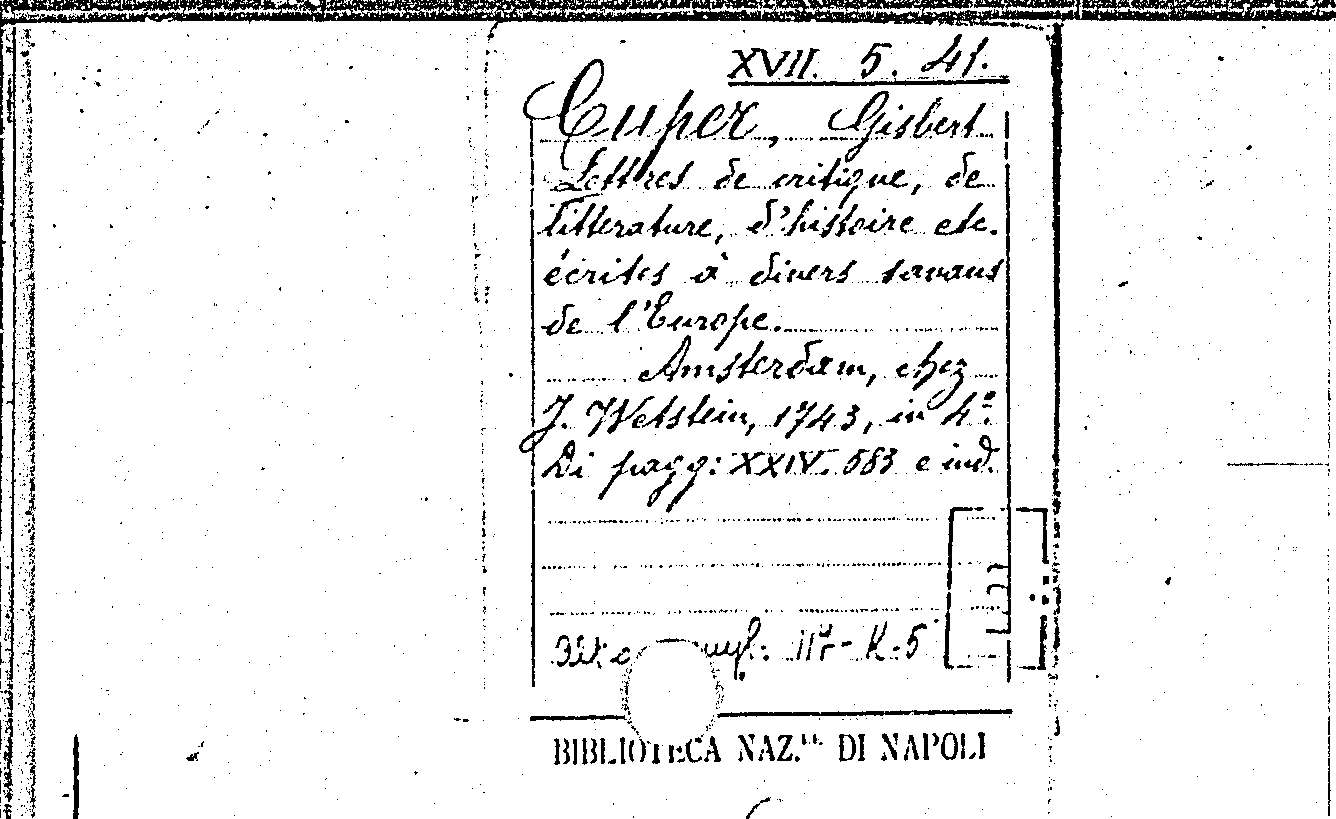 XVII. 5. 41.
Cuper, Gisbert
Lettres de critique, de
litterature, d'histoire etc.
écrites à divers savans
de l'Europe.
Amsterdam, chez
J. Wetstein, 1743, in 4º.
Di pagg: XXIV. 583 e ind.
BIBLIOTECA NAZ.LE DI NAPOLI